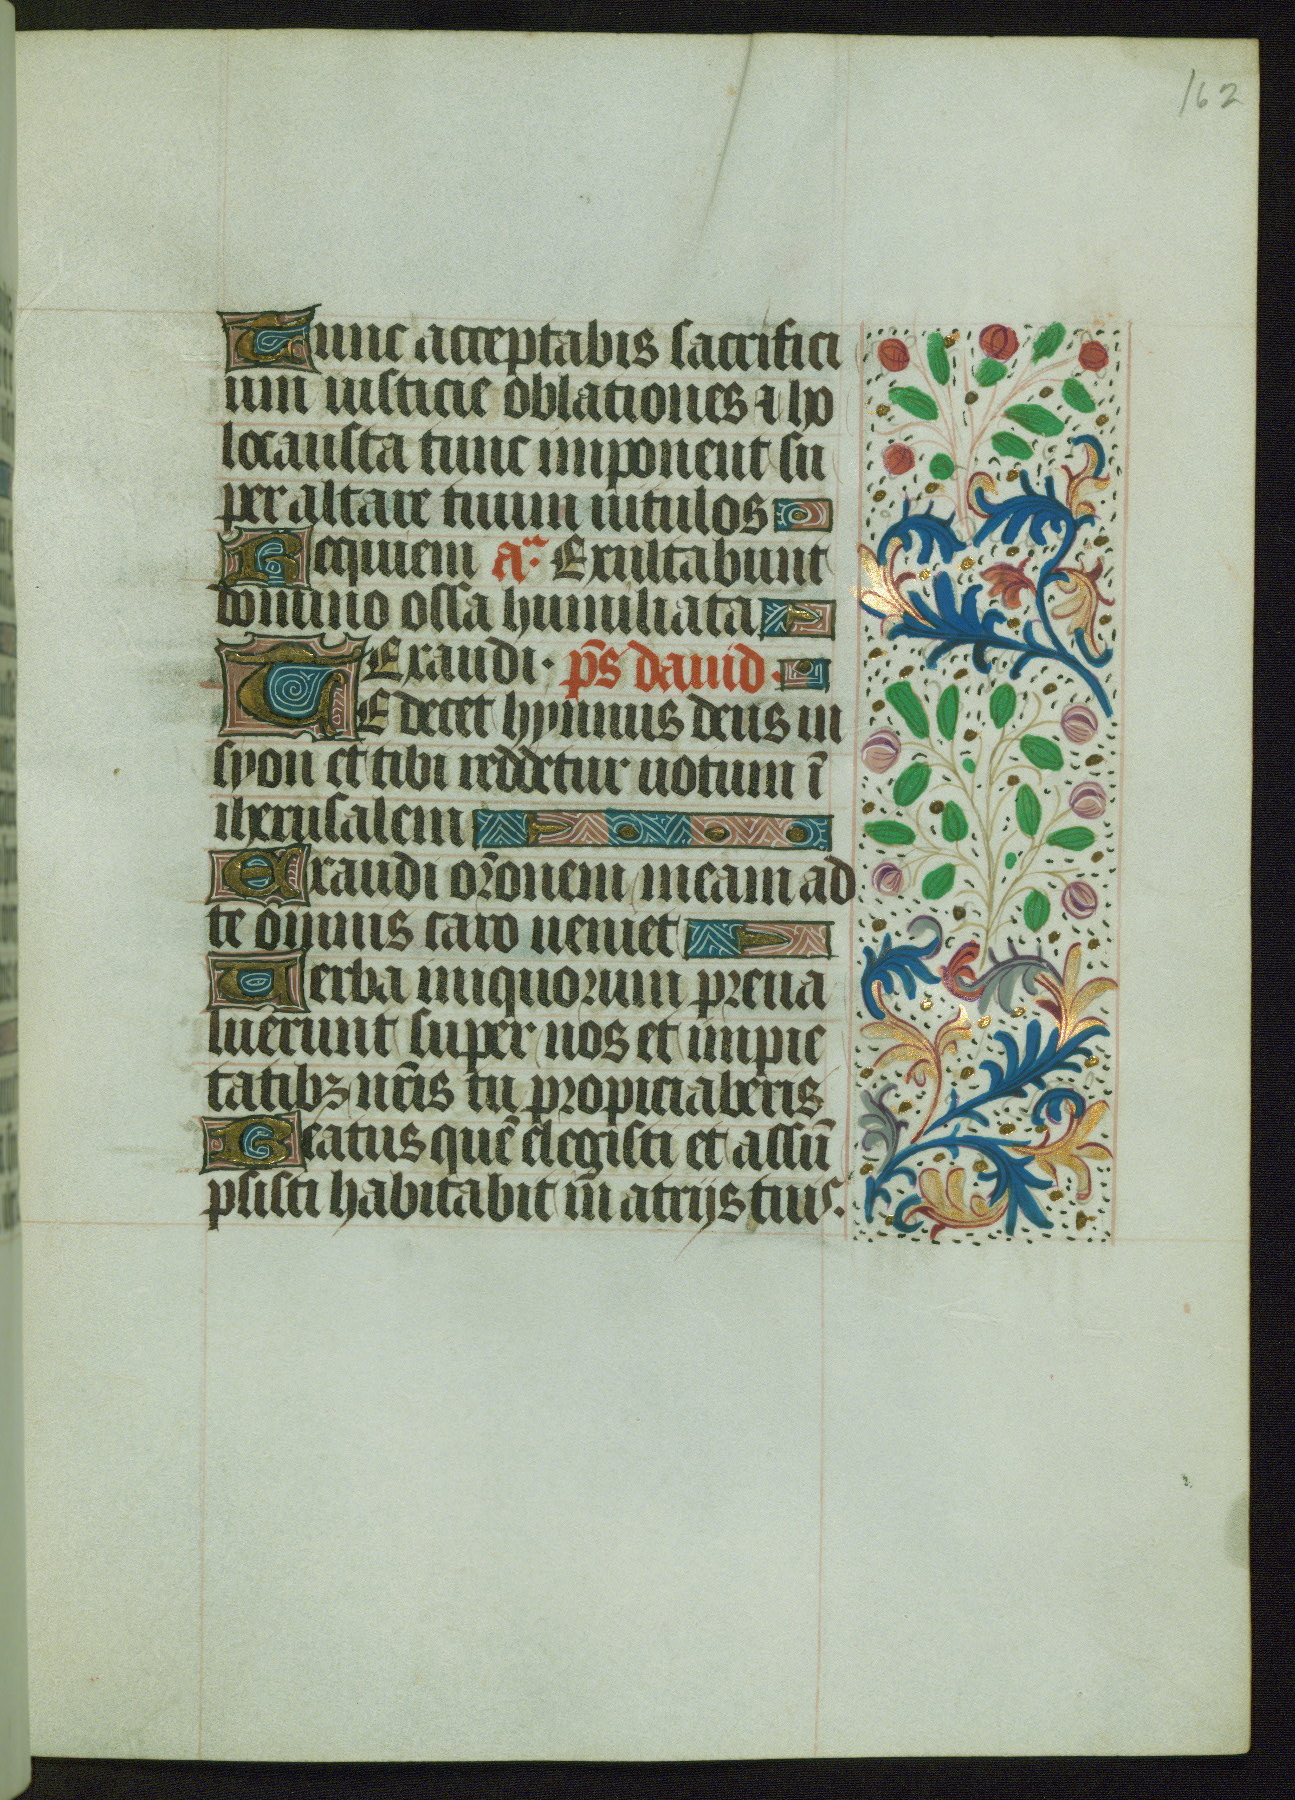 162
Tunc acceptabis sacrifici
um iusticie oblationes ⁊ ho
locausta tunc imponent su
per altare tuum uitulos
Requiem aᵃ· Exultabunt
domino ossa humiliata
Exaudi· p̄s dauid·
TE decet hymnus deus in
syon et tibi reddetur uotum ī
iherusalem
Exaudi or̄onem meam ad
te omnis caro ueniet
Uerba iniquorum preua
luerunt super nos et impie
tatibꝫ nr̄is tu propiciaberis
Beatus quē elegisti et assū
psisti habitabit in atrijs tuis·